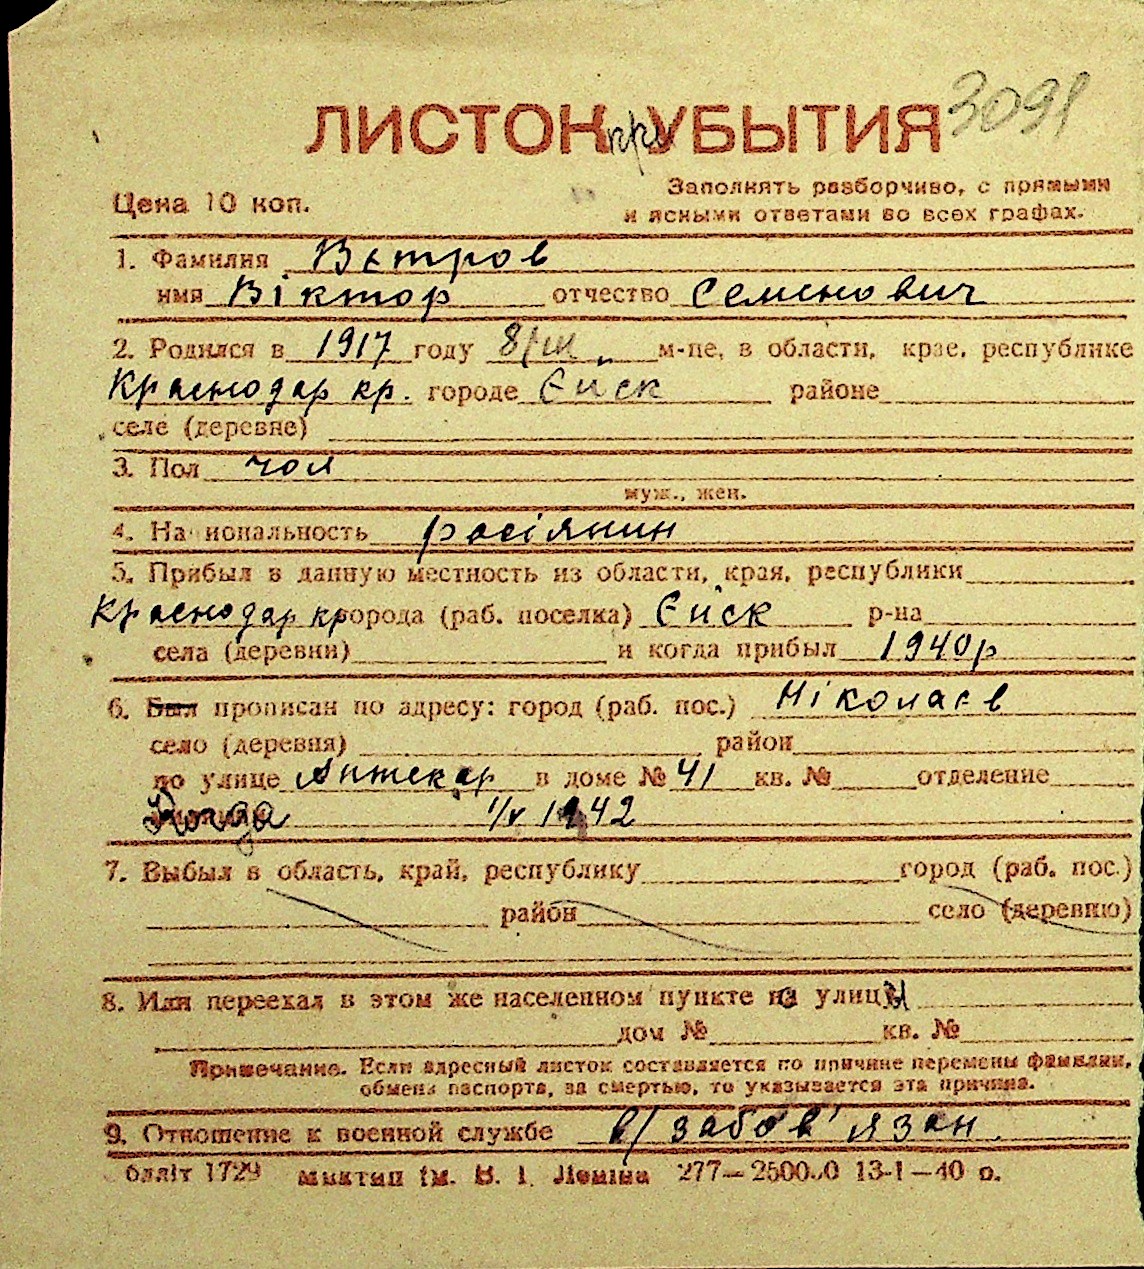 3091
ЛИСТОК при УБЫТИЯ
Заполнять разборчиво, с прямыми
Цена 10 коп.
и ясными ответами во всех графах.
1. Фамилия Вєтров
имя Віктор отчество Семенович
2. Родился в 1917 году 8/III м-це, в области, крае, республике
Краснодар кр. городе Єйск районе
селе (деревне)
3. Пол чол
муж., жен.
4. На иональность росіянин
5. Прибыл в данную местность из области, края, республики
Краснодар кр города (раб. поселка) Єйск р-на
села (деревни) и когда прибыл 1940р
6. Был прописан по адресу: город (раб. пос.) Ніколаєв
село (деревня) район
по улице Аптекар в доме № 41 кв. № отделение
Когда 1/V 1942
7. Выбыл в область, край, республику город (раб. пос.)
район село (деревню)
8. Или переехал в этом же населенном пункте на улицу
дом № кв. №
Примечание. Если адресный листок составляется по причине перемены фамилии,
обмена паспорта, за смертью, то указывается эта причина.
9. Отношение к военной службе в/забов'язан
блліт 1729 миктип ім. В. І. Леніна 277— 13-I—40 р.